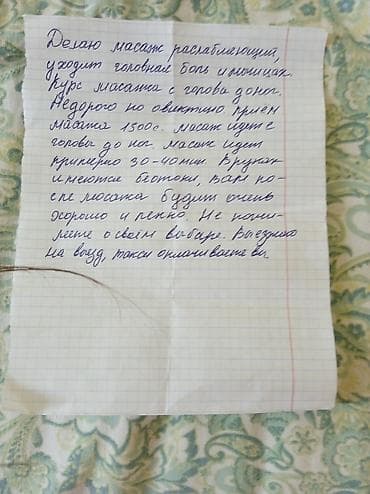 Делаю масаж раслабляющий,
уходит головная боль и мочицах.
Курс масажа с голова до ног.
Недорого но эвиктино прием
масажа 1500с. масаж идет с
головы до ног. масаж идет
примерно 30-40мин. В руках
имеются биотоки, вам по-
сле масажа будит очень
хорошо и лехко. Не пожи-
леете о своем выборе. Выезжаю
на выезд, такси оплачиваете вы.